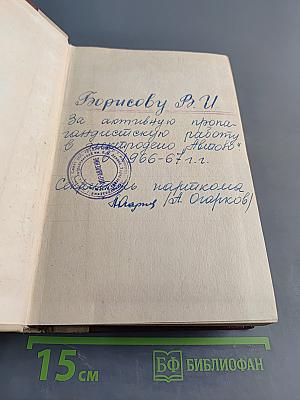 Борисову В. И
За активную пропа-
гандистскую работу
в электродепо „Автово"
1966-67 г.г.
Секретарь парткома
(А. Огарков)
15 см
БФ БИБЛИОФАН